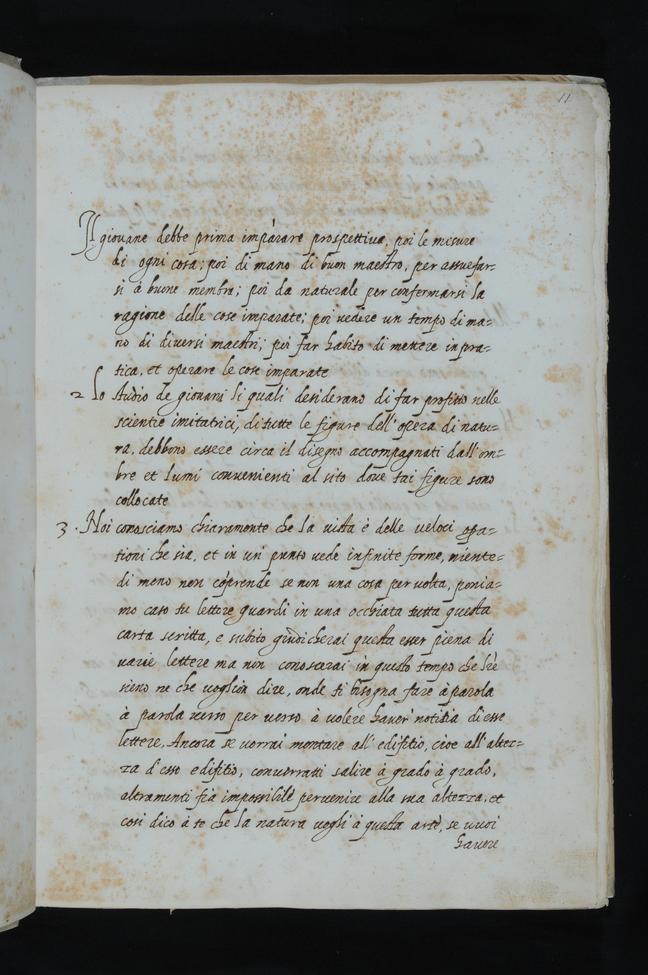 11
Il giovane debbe prima imparare prospettiva, poi le misure
di ogni cosa; poi di mano di buon maestro, per assuefar=
si à buone membra; poi da naturale per confermarsi la
ragione delle cose imparate; poi vedere un tempo di ma=
no di diversi maestri; poi far habito di mettere in pra=
tica, et operare le cose imparate
2 Lo studio de giovani li quali desiderano di far profitto nelle
scientie imitatrici, di tutte le figure dell'opera di natu=
ra, debbono essere circa il disegno accompagnati dall'om=
bre et lumi convenienti al sito dove tai figure sono
collocate
3. Noi conosciamo chiaramente che la vista è delle veloci opa=
tioni che sia, et in un punto vede infinite forme, niente=
di meno non cõprende se non una cosa per volta, ponia=
mo caso tu lettore guardi in una occhiata tutta questa
carta scritta, e subito giudicherai questa esser piena di
varie lettere ma non conoscerai in questo tempo che lr̃e
sieno ne che voglion dire, onde ti bisogna fare à parola
à parola verso per verso à volere haver notitia d'esse
lettere. Ancora se vorrai montare all'edifitio, cioe all'altez=
za d'esso edifitio, converratti salire à grado à grado,
altramenti fia impossibile pervenire alla sua altezza. et
cosi dico à te che la natura vogli à questa arte, se vuoi
havere